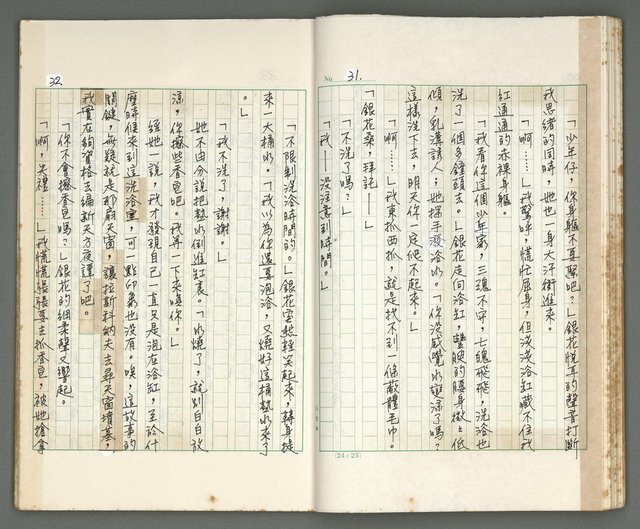 31.
No.
「少年仔，你身軀不要緊吧？」銀花脫耳的聲音打斷
我思緒的同時，她也一身大汗衝進來。
「啊……」我驚呼，慌忙屈身，但淺淺浴缸藏不住我
紅通通的赤裸身軀。
「我看你這個少年家，三魂不守，七魄飛飛，洗浴也
洗了一個多鐘頭去。」銀花走向浴缸，豐腴的腰身微微低
傾，乳溝誘人；她探手潑浴水。「你沒感覺水變涼了嗎？
這樣洗下去，明天你一定爬不起來。」
「啊……」我東抓西抓，就是找不到一條蔽體毛巾。
「銀花桑，拜託——」
「不洗了嗎？」
「我——沒注意到時間。」
(24×25)
32.
「不限制洗浴時間的。」銀花輕鬆笑起來，轉身提
來一大桶水。「我以為你還要泡浴，又燒好這桶熱水來了
。」
「我不洗了，謝謝。」
她不由分說把熱水倒進缸裏。「水燒了，就別白白放
涼，你擦些香皂吧。我再一下來喚你。」
經她一說，我才發現自己一直只是泡在浴缸，至於什
麼時候來到這洗浴室，可一點印象也沒有。唉，這故事的
關鍵，無疑就是那扇天窗，讓拉斯科納夫去尋天窗墳墓，
我實在夠資格去編新天方夜譚了吧。
「你不會擦香皂嗎？」銀花的細柔聲又響起。
「啊，失禮……」我慌慌張張要去抓香皂，被她搶拿